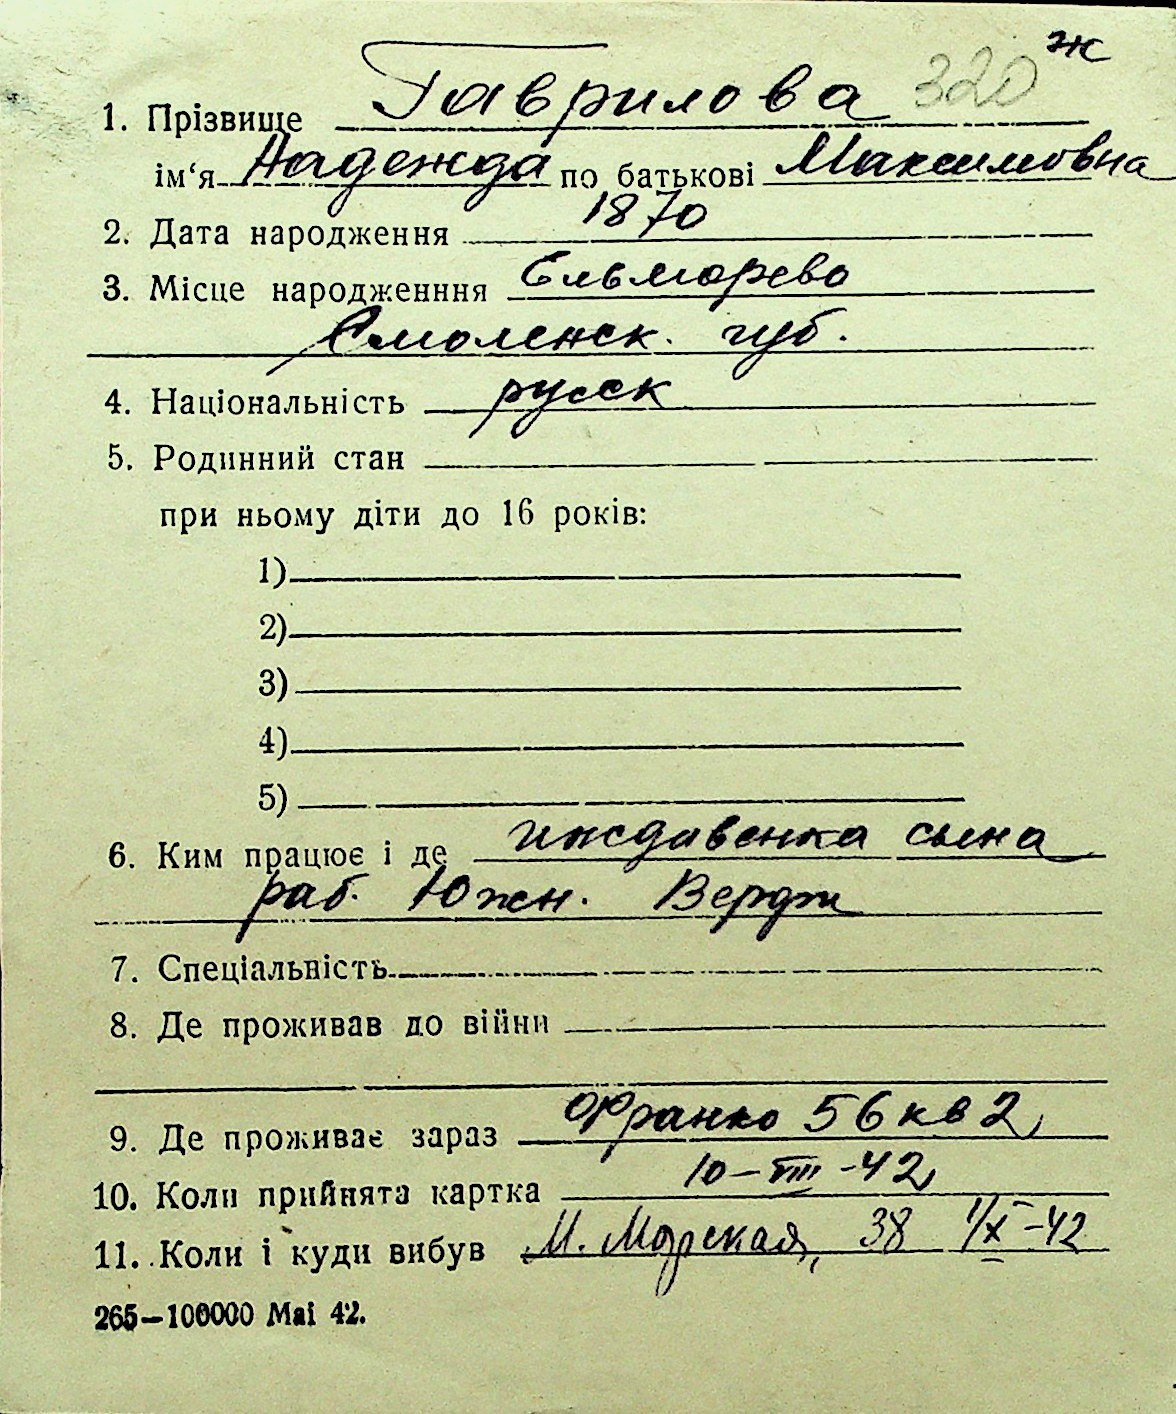 ж
1. Прізвище Гаврилова 320
ім‘я Надежда по батькові Максимовна
2. Дата народження 1870
3. Місце народженння
Смоленск. губ.
4. Національність русск
5. Родинний стан
при ньому діти до 16 років:
1)
2)
3)
4)
5)
6. Ким працює і де иждивенка сына
раб. Южн. Верфи
7. Спеціальність
8. Де проживав до війни
9. Де проживає зараз Франко 56 кв 2
10. Коли прийнята картка 10-VIII-42
11. Коли і куди вибув М. Морская, 38 1/X-42
265—100000 Mai 42.